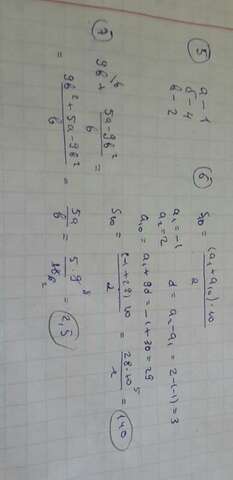 5
а - 1
б - 4
в - 2
6
S10 = (a1 + a10) · 10 / 2
a1 = -1
a2 = 2
d = a2 - a1 = 2 - (-1) = 3
a10 = a1 + 9d = -1 + 30 = 29
S10 = (-1 + 29) · 10 / 2 = 28 · 10 5 / 2 = 140
7
9b + \b 5a - 9b² / b =
= 9b² + 5a - 9b² / b = 5a / b = 5 · 9 / 18 2 = 2,5